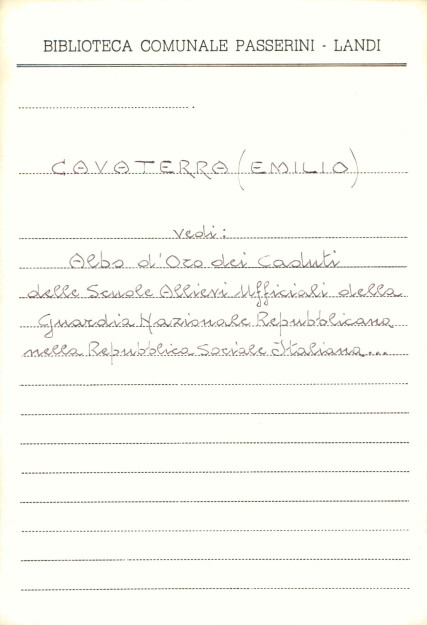 BIBLIOTECA COMUNALE PASSERINI - LANDI
CAVATERRA (EMILIO)
vedi:
Albo d'Oro dei Caduti
delle Scuole Allievi Ufficiali della
Guardia Nazionale Repubblicana
nella Repubblica Sociale Italiana...